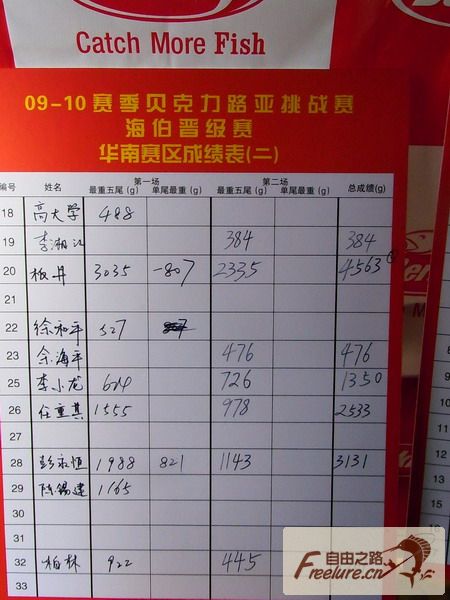 Catch More Fish
09-10赛季贝克力路亚挑战赛
海伯晋级赛
华南赛区成绩表(二)
编号 姓名 第一场 第二场 总成绩(g)
最重五尾(g) 单尾最重(g) 最重五尾(g) 单尾最重(g)
18 高大学 488
19 李湘江 384 384
20 板井 3035 -807 2335 4563
21
22 徐和平 527
23 余海平 476 476
25 李小龙 624 726 1350
26 任重其 1555 978 2533
27
28 彭永恒 1988 821 1143 3131
29 陈锡建 1165
30
31
32 柏林 922 445
33
自由之路
Freelure.cn